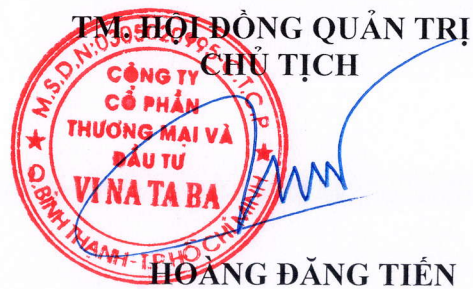 TM. HỘI ĐỒNG QUẢN TRỊ
CHỦ TỊCH
CÔNG TY
CỔ PHẦN
THƯƠNG MẠI VÀ
ĐẦU TƯ
VI NA TA BA
Q.BÌNH THẠNH - T.P HỒ CHÍ MINH
HOÀNG ĐĂNG TIẾN